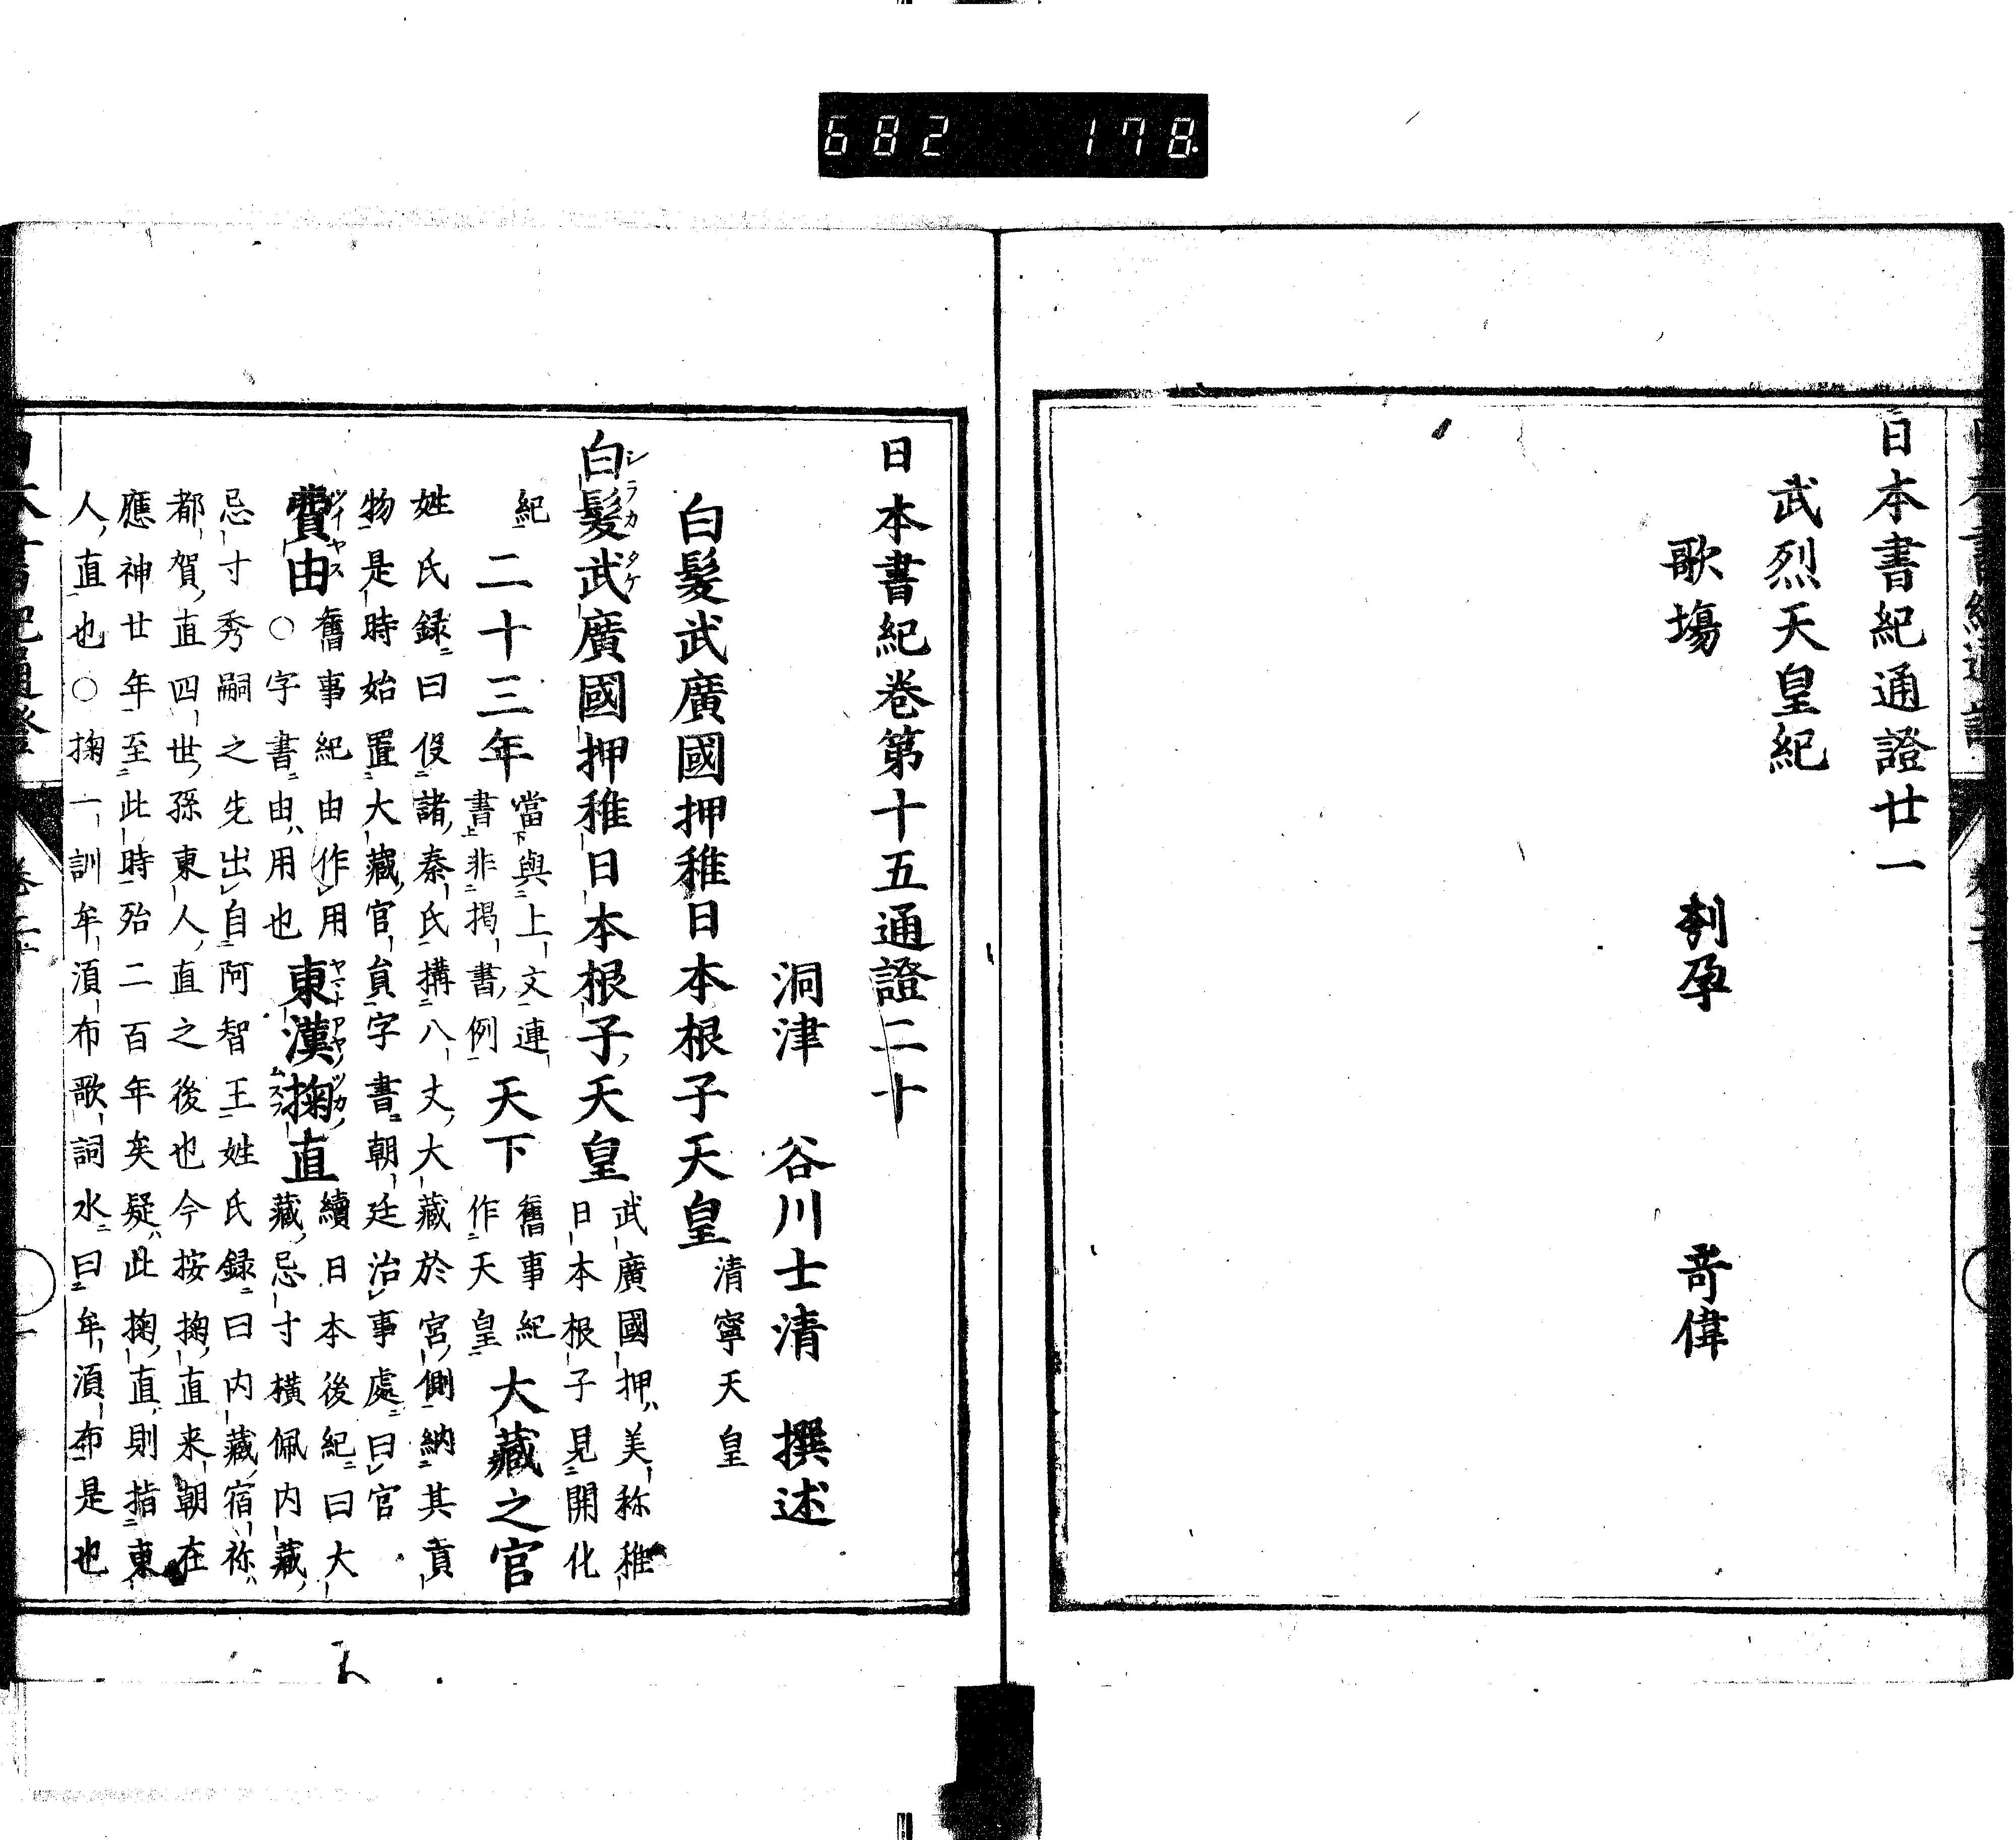 682 178.
日本書紀通證廿一
武烈天皇紀
歌場 刳孕 奇偉
日本書紀卷第十五通證二十
洞津 谷川士清 撰述
白髮武廣國押稚日本根子天皇 清寧天皇
白髮武廣國押稚日本根子天皇 武廣國押美称稚
シラカタケ
日本根子見開化
紀 二十三年 當與上文連
書非揭書例 天下 舊事紀
作天皇 大藏之官
姓氏録曰役諸秦氏搆八丈大藏於宮側納其貢
物是時始置大藏官員字書朝廷治事處曰官
費由 舊事紀由作用
ツイヤス
○字書由用也 東漢掬直 續日本後紀曰大
ヤマトアヤノツカノ
ムスフ
藏忌寸横佩内藏
忌寸秀嗣之先出自阿智王姓氏録曰内藏宿祢
都賀直四世孫東人直之後也今按掬直来朝在
應神廿年至此時殆二百年矣疑此掬直則指東
人直也○掬一訓牟湏布歌詞水曰牟湏布是也